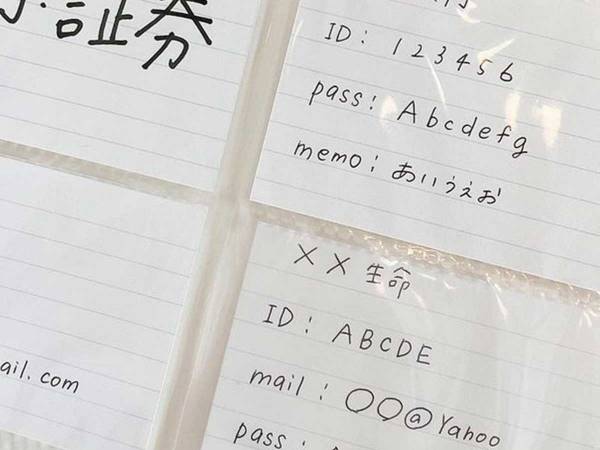 証券
ID: 123456
pass: Abcdefg
memo: あいうえお
ail.com
××生命
ID: ABCDE
mail: ○○@Yahoo
pass: